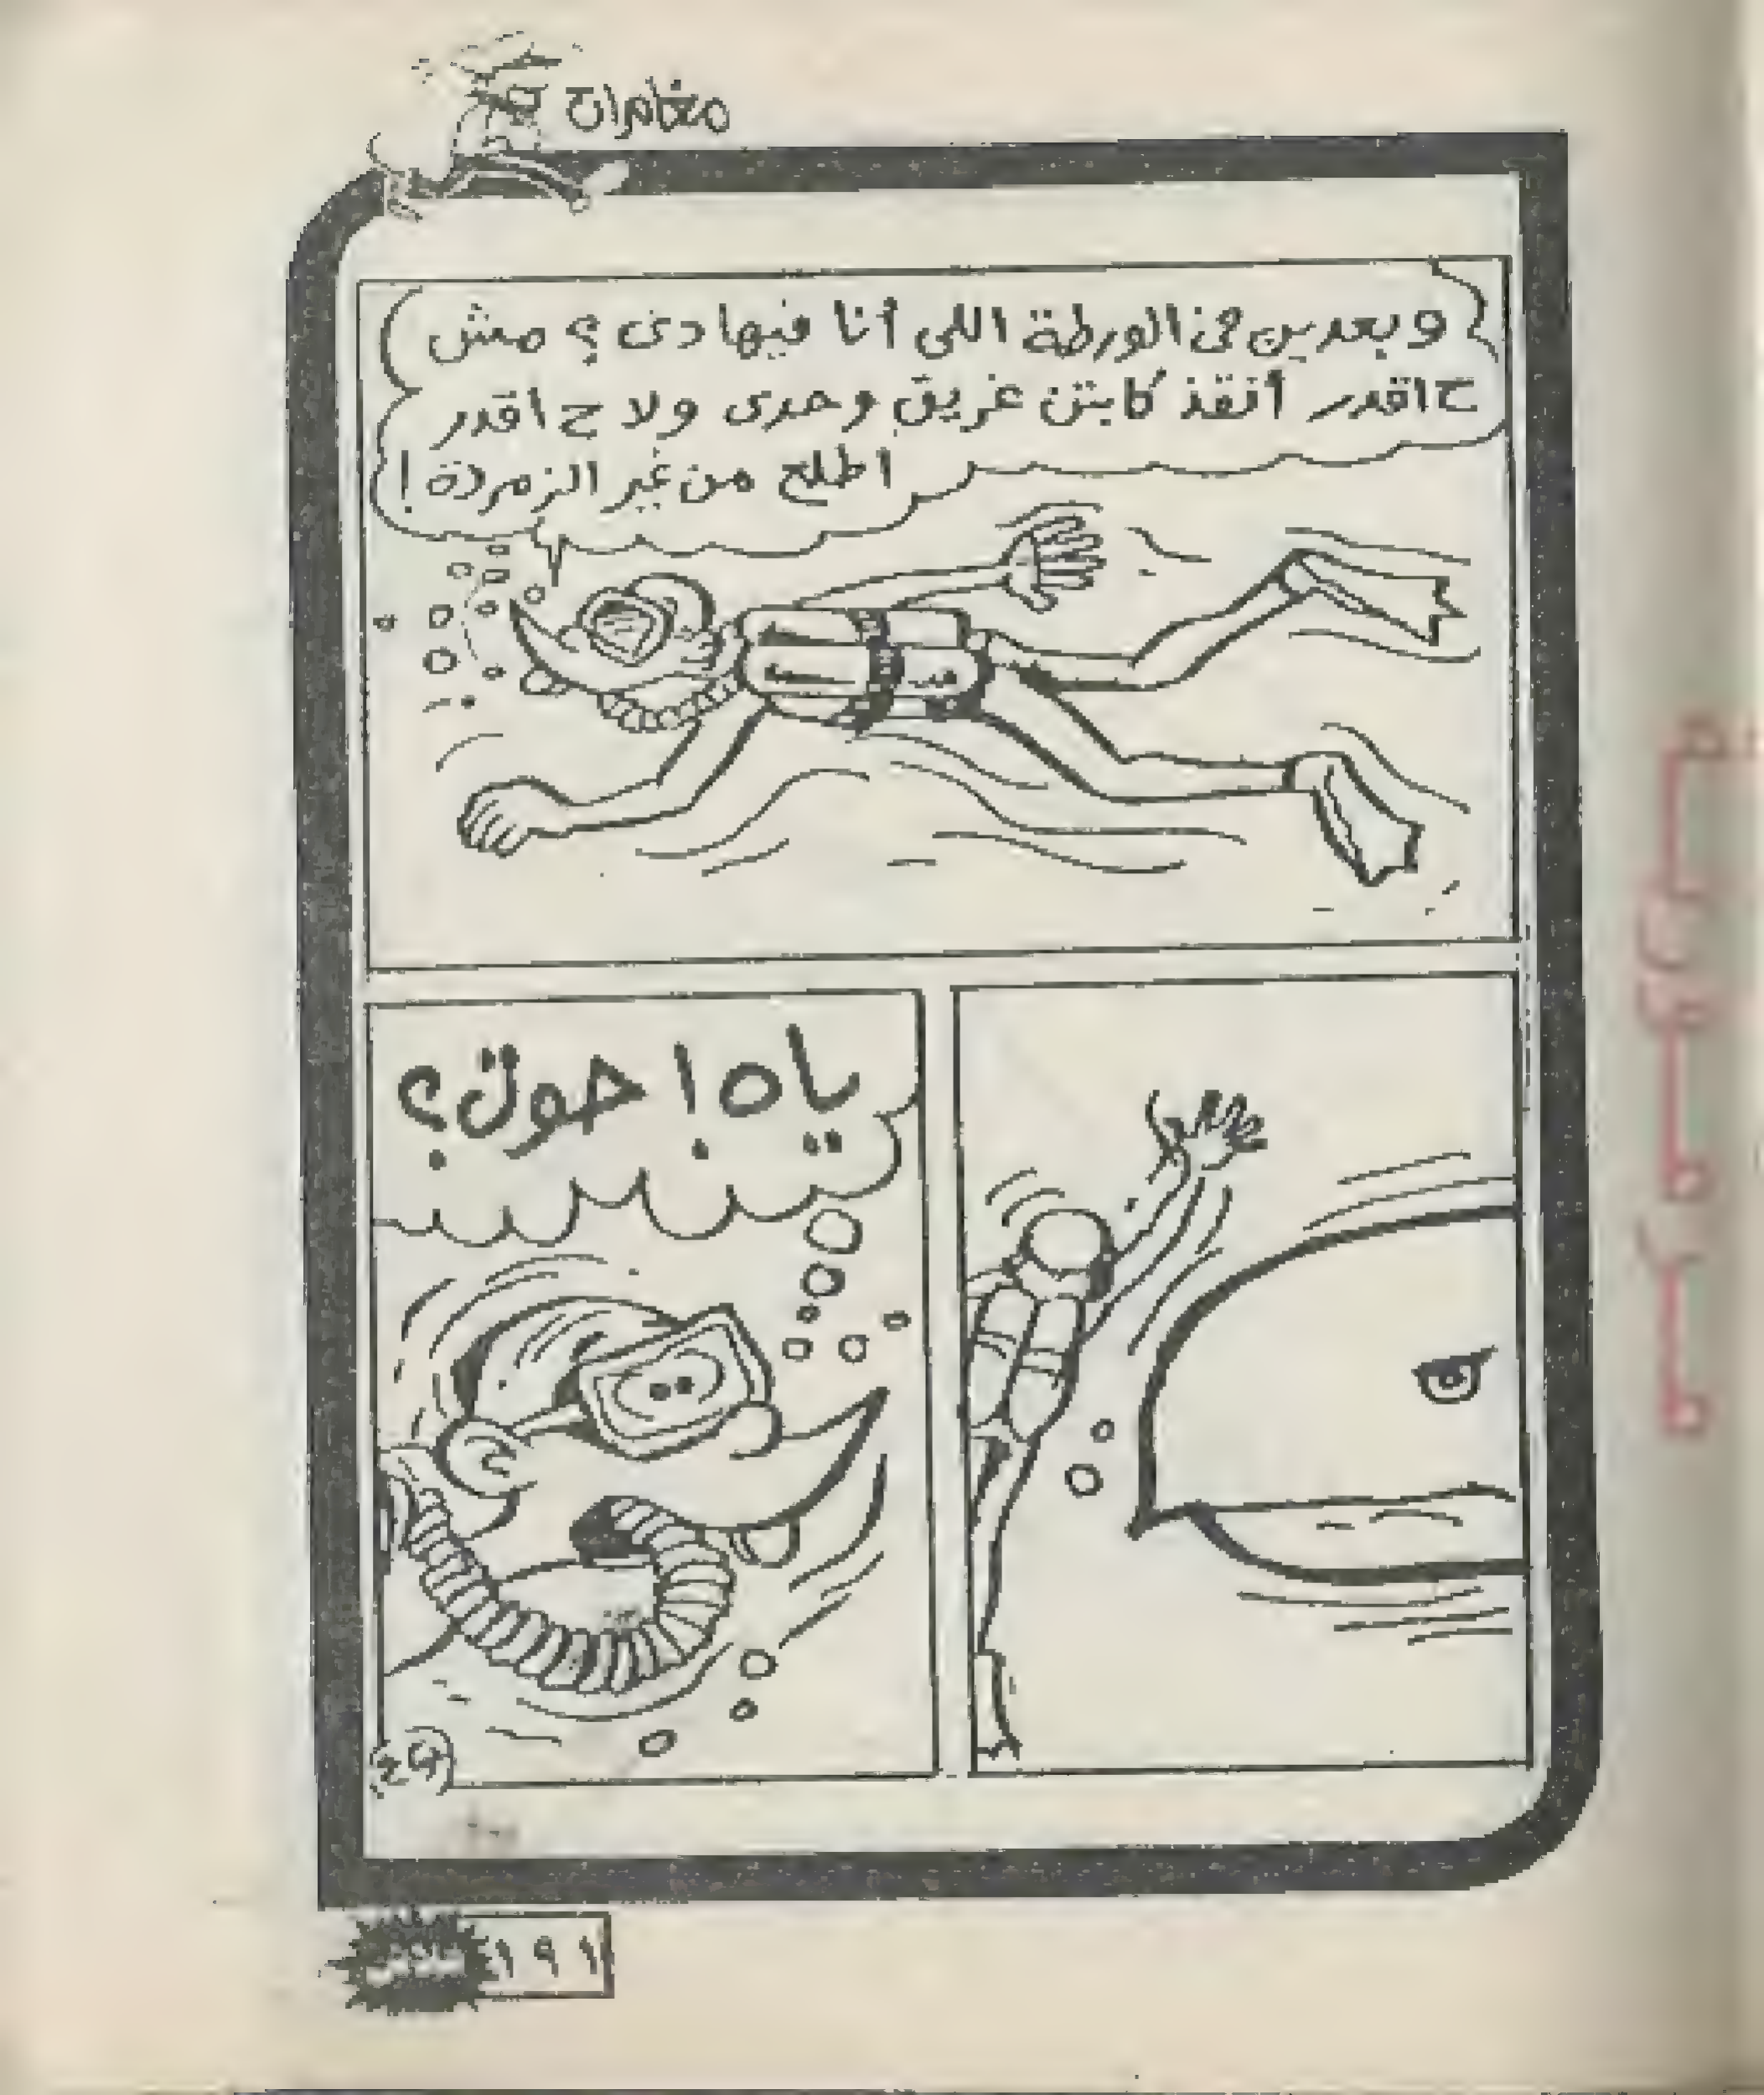 مغامرات
وبعدين في الورطة اللى أنا فيها دى ؟ مش
ح اقدر أنقذ كابتن غريق وحدى ولا ح اقدر
اطلع من غير الزمردة !
ياه ! حوت ؟
فلاش
١٩١